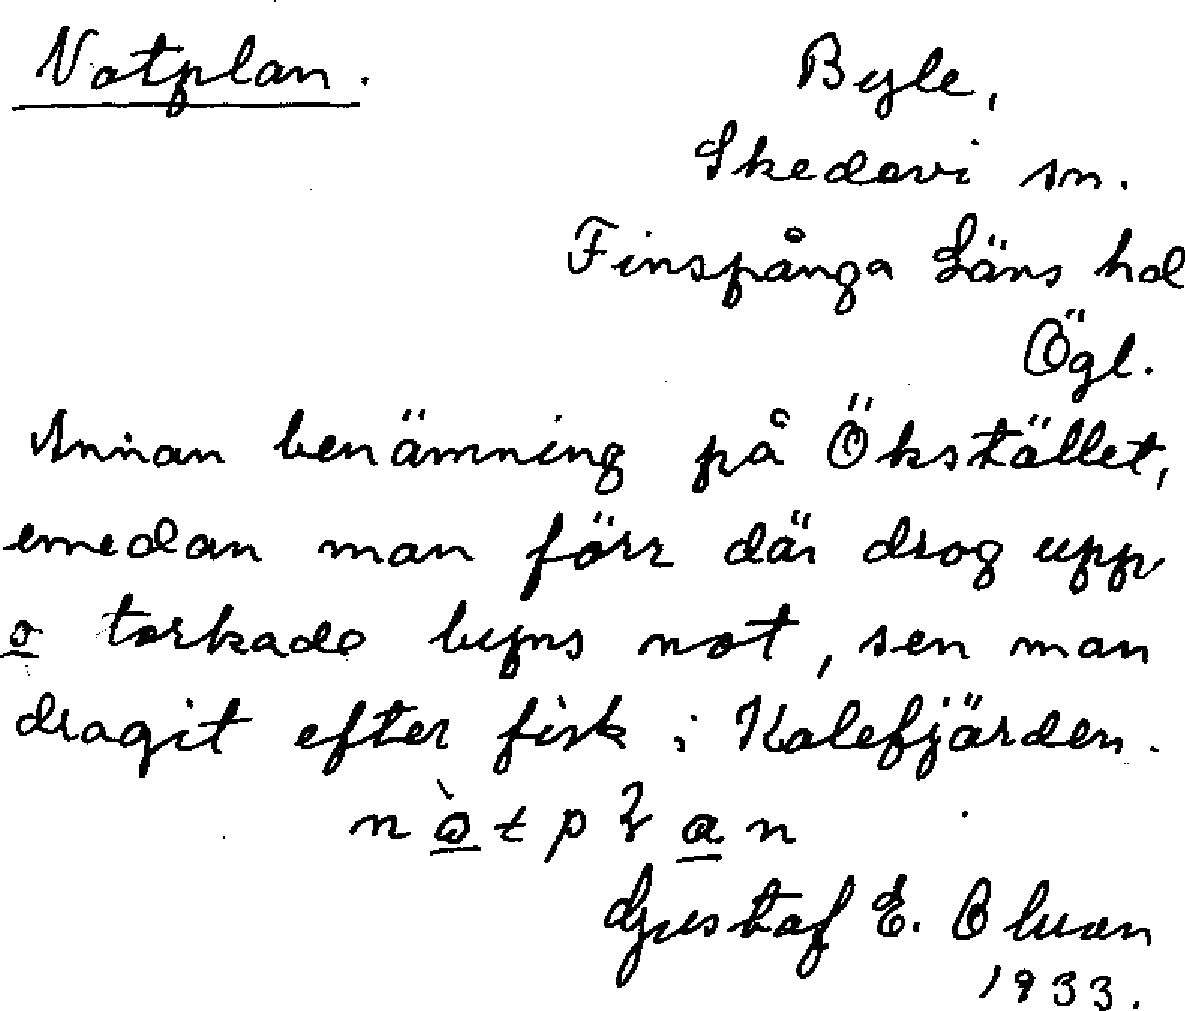 Notplan.
Byle,
Skedevi sn.
Finspånga Läns hd
Ögl.
Annan benämning på Ökstället,
emedan man förr där drog upp
o torkade byns not, sen man
dragit efter fisk i Kalefjärden.
Gustaf E.
1933.